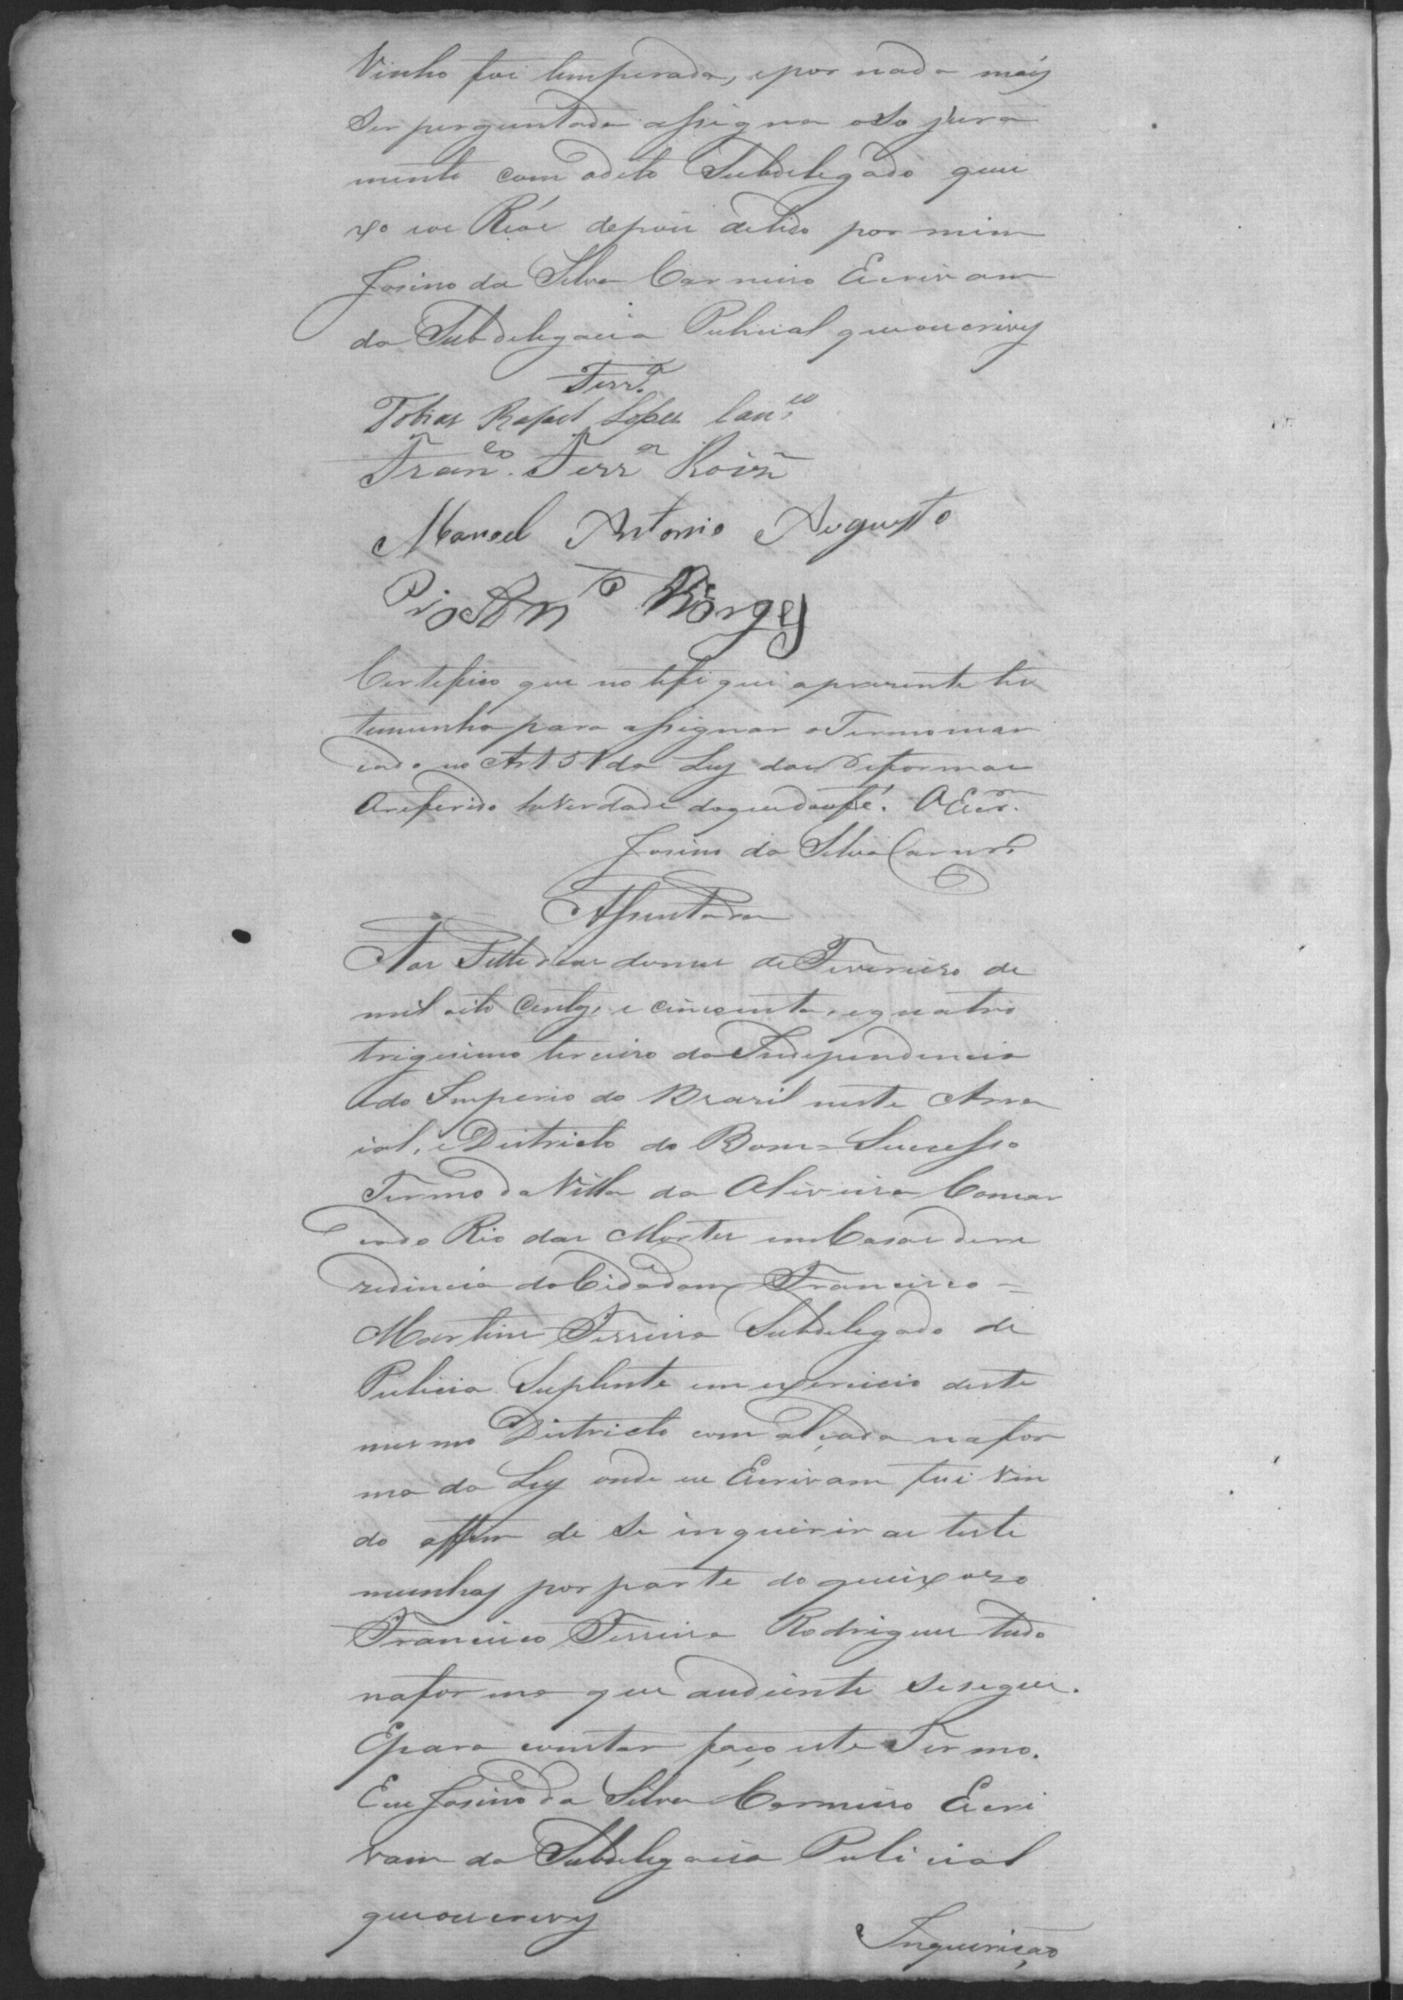 Vinho foi temperado, epor nada mais
Ser perguntado assigna oSo jura
mento com odito Subdelegado quei
xo eos Réos depois delido por mim
Josino da Silva Carneiro Escrivam
da Subdelegacia Pulicial queouscrivy
Ferr.ª
Tobias Rafael Lopes
Fran.co Ferr.ª Roiz
Manoel Antonio Augusto
Pio Ant.o Borges
Certefico que notifiquei aprezente tes
temunha para assignar oTermo mar
cado no Art 51 da Ley das Reformas
Oreferido he Verdade doque doufé. OEscr.
Josino da Silva Carnro
Assentada
Aos Sette dias domes de Fevereiro de
mil oito Centos e cincoenta, equatro
trigesimo terceiro da Independencia
edo Imperio do Brazil neste Arra
ial, e Districto do Bom=Sucesso
Termo da Villa da Oliveira Comar
cado Rio das Mortes em Casas dere
zidencia doCidadam Francisco=
Martins Ferreira Subdelegado de
Pulicia Suplente em exercicio deste
mesmo Districto com alçada nafor
ma da Ley onde eu Escrivam fui vin
do affim de Se inquirir as teste
munhas por parte do queixozo
Francisco Ferreira Rodrigues tudo
naforma que audiente Sesegue.
Epara constar faço este Termo.
Eu Josino da Silva Carneiro Escri
vam da Subdelegacia Pulicial
queouscrevy
Inquirição